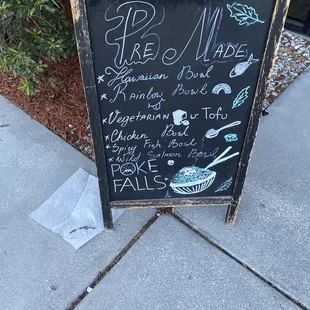 Pre Made
Hawaiian Bowl
Rainbow Bowl
Vegetarian w. Tofu
Chicken Bowl
Spicy Fish Bowl
Wild Salmon Bowl
POKE
FALLS